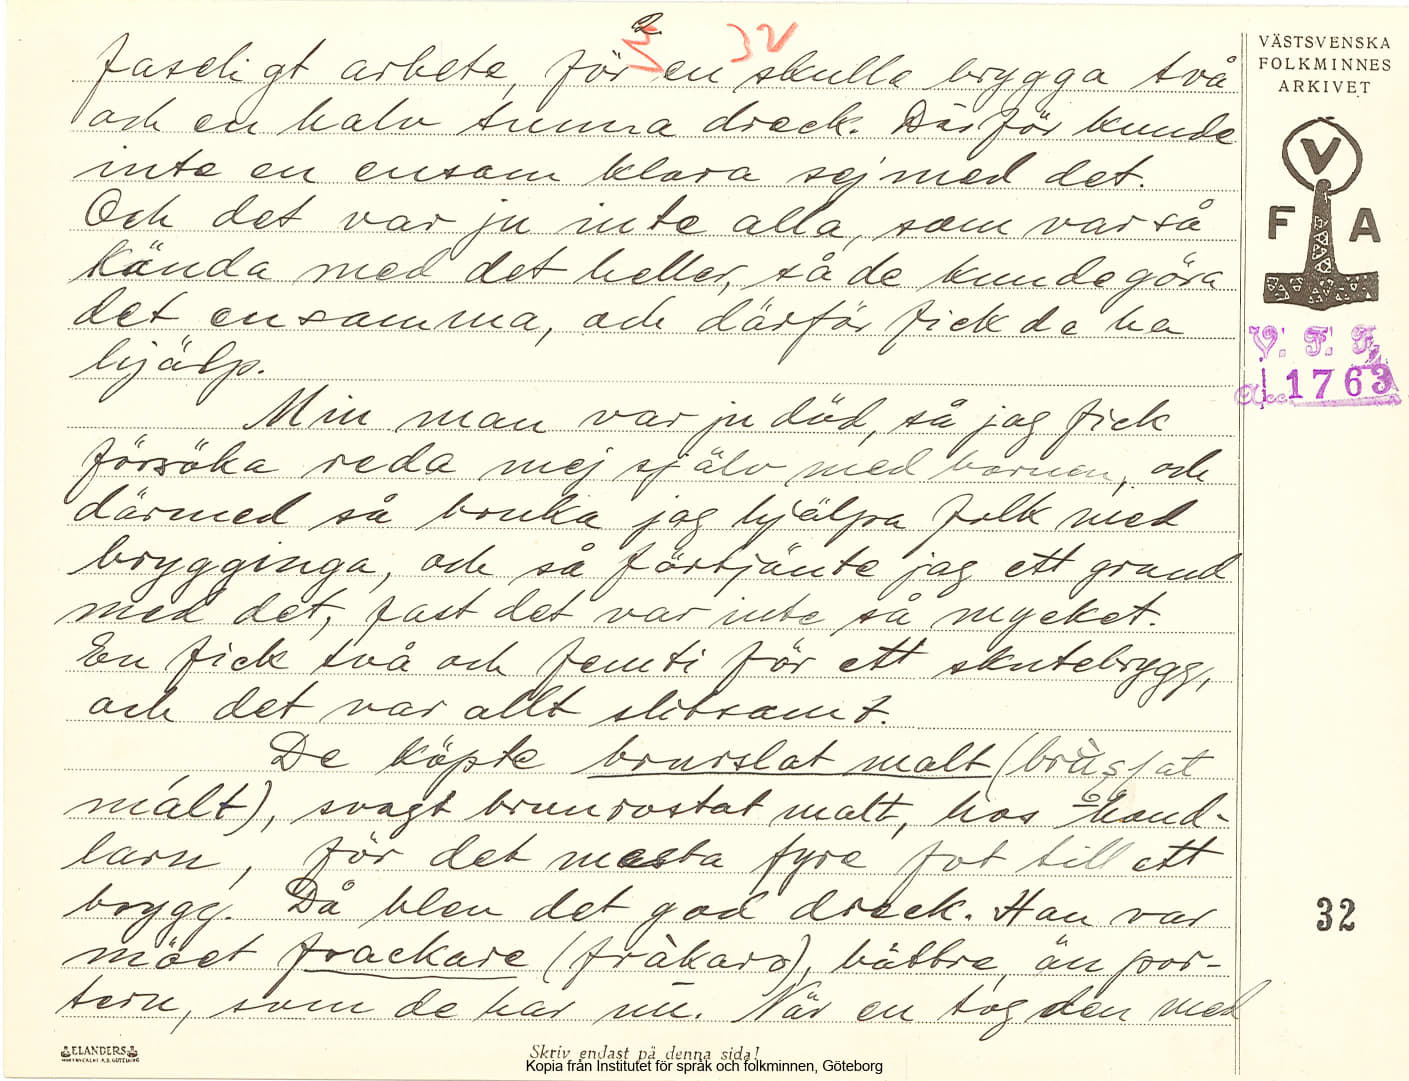 2
32
faseligt arbete, för en skulle brygga två
och en halv tunna dreck. Därför kunde
inte en ensam klara sej med det.
Och det var ju inte alla, som var så
kända med det heller, så de kunde göra
det ensamma, och därför fick de ha
hjälp.
Min man var ju död, så jag fick
försöka reda mej själv med barnen, och
därmed så bruka jag hjälpa folk med
brygginga, och så förtjänte jag ett grand
med det, fast det var inte så mycket.
En fick två och femti för ett skutebrygg,
och det var allt slitsamt.
De köpte brunslat malt
malt), svagt brunrostat malt, hos hand-
larn, för det mesta fyra fot till ett
brygg. Då blev det god dreck. Han var
möet frackare (fràkarə), bättre än por-
tern, som de har nu. När en tog den med
VÄSTSVENSKA
FOLKMINNES
ARKIVET
V
F A
V. F. F.
Acc. 1763
32
ELANDERS
Skriv endast på denna sida!
Kopia från Institutet för språk och folkminnen, Göteborg